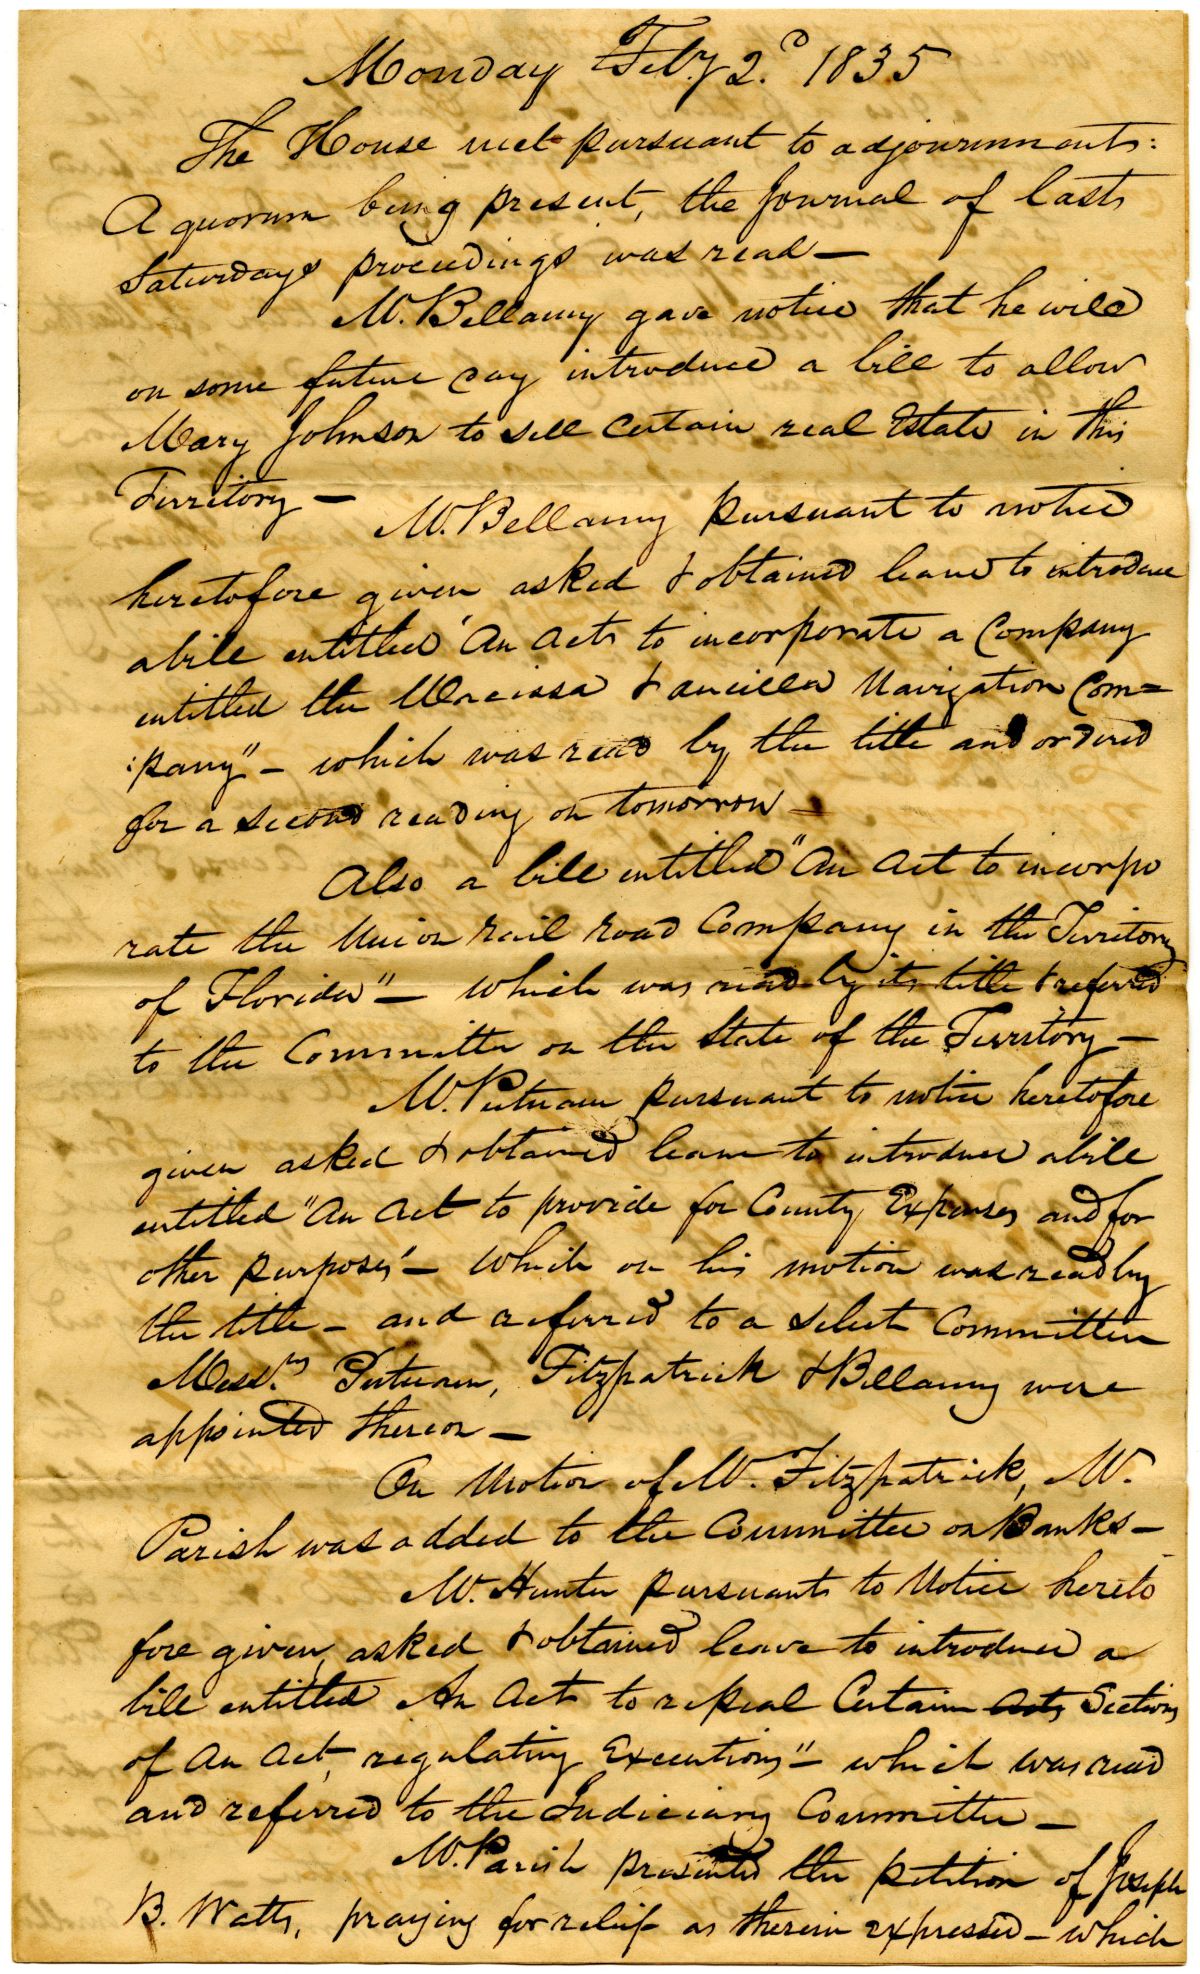 Monday Feby 2d 1835
The House met pursuant to adjournment:
A quorum being present, the Journal of last
Saturdays proceedings was read—
Mr. Bellamy gave notice that he will
on some future day introduce a bill to allow
Mary Johnson to sell certain real Estate in this
Territory—
Mr. Bellamy pursuant to notice
heretofore given asked & obtained leave to introduce
a bill entitled "An Act to incorporate a Company
entitled the Wacissa & aucilla Navigation Com=
:pany"— which was read by the title and ordered
for a second reading on tomorrow—
Also a bill entitled "An Act to incorpo
rate the Union rail road Company in the Territory
of Florida"— which was read by its title & referred
to the Committee on the State of the Territory—
Mr. Putnam pursuant to notice heretofore
given asked & obtained leave to introduce a bill
entitled "An Act to provide for County Expenses and for
other purposes"— Which on his motion was read by
the title— and referred to a select Committee
Messrs. Putnam, Fitzpatrick & Bellamy were
appointed thereon—
On Motion of Mr. Fitzpatrick, Mr.
Parish was added to the Committee on Banks—
Mr. Hunter pursuant to Notice hereto
fore given, asked & obtained leave to introduce a
bill entitled An Act to repeal Certain Acts Sections
of An Act, regulating Executions"— which was read
and referred to the Judiciary Committee—
Mr. Parish presented the petition of Joseph
B. Watts, praying for relief as therein expressed— which